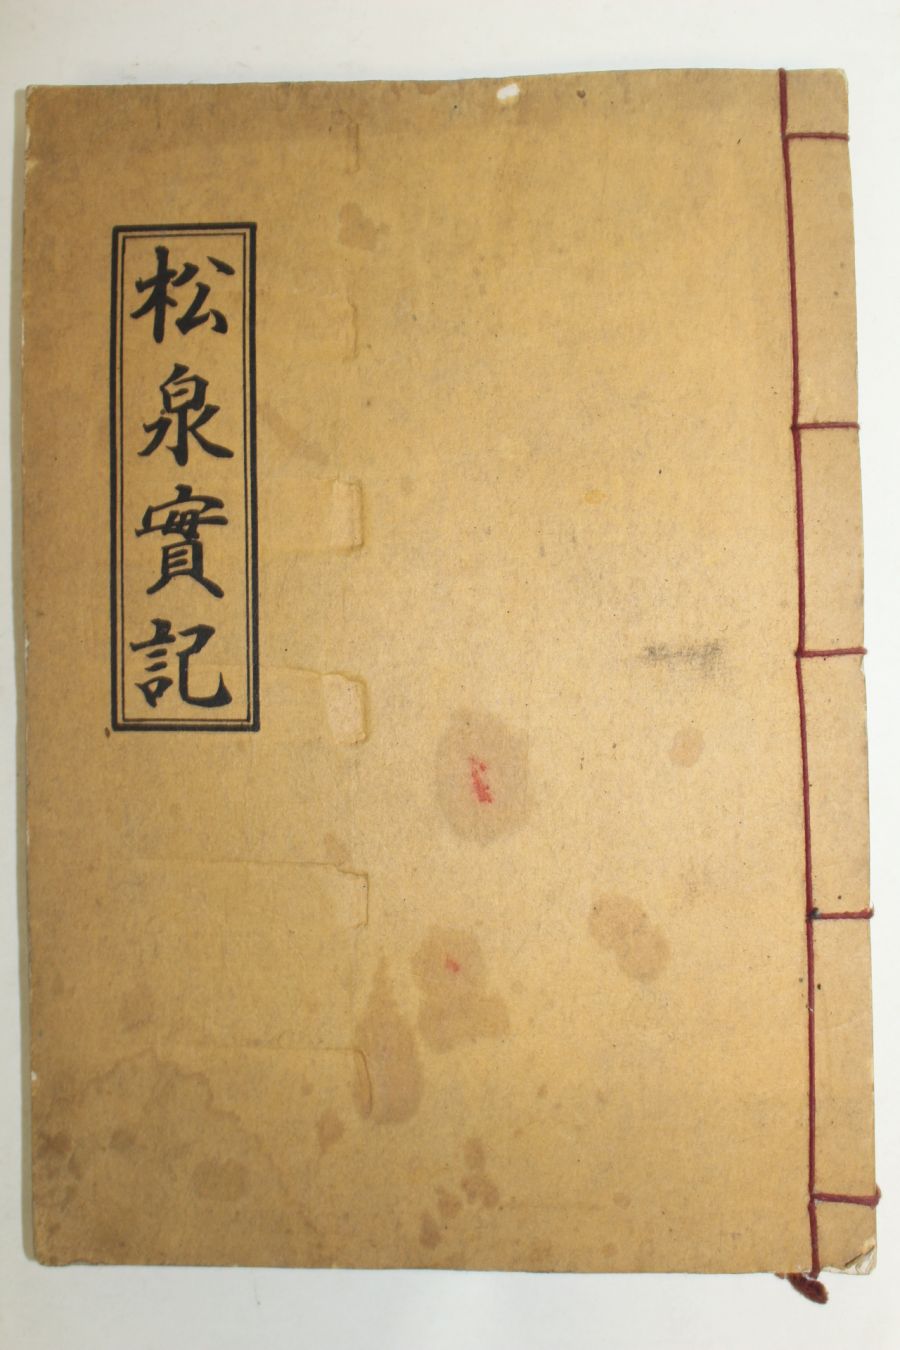 松泉實記